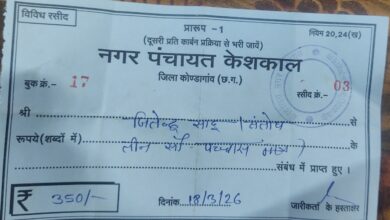 विविध रसीद
प्रारूप -1
नियम 20,24(ख)
(दूसरी प्रति कार्बन प्रक्रिया से भरी जायें)
नगर पंचायत केशकाल
जिला कोण्डागांव (छ.ग.)
बुक क्रं.- 17
रसीद क्रं.- 03
श्री जितेन्द्र साहू / संतोष से
रूपये(शब्दों में) तीन सौ पच्चास मात्र
संबंध में प्राप्त हुए ।
₹ 350/-
दिनांक 18/3/26
जारीकर्ता के हस्ताक्षर